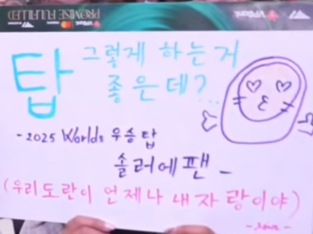 PROMISE FULFILLED
탑 그렇게 하는거
좋은데?..
-2025 Worlds 우승 탑
솔러에팬_
(우리도란이 언제나 내자랑이야)